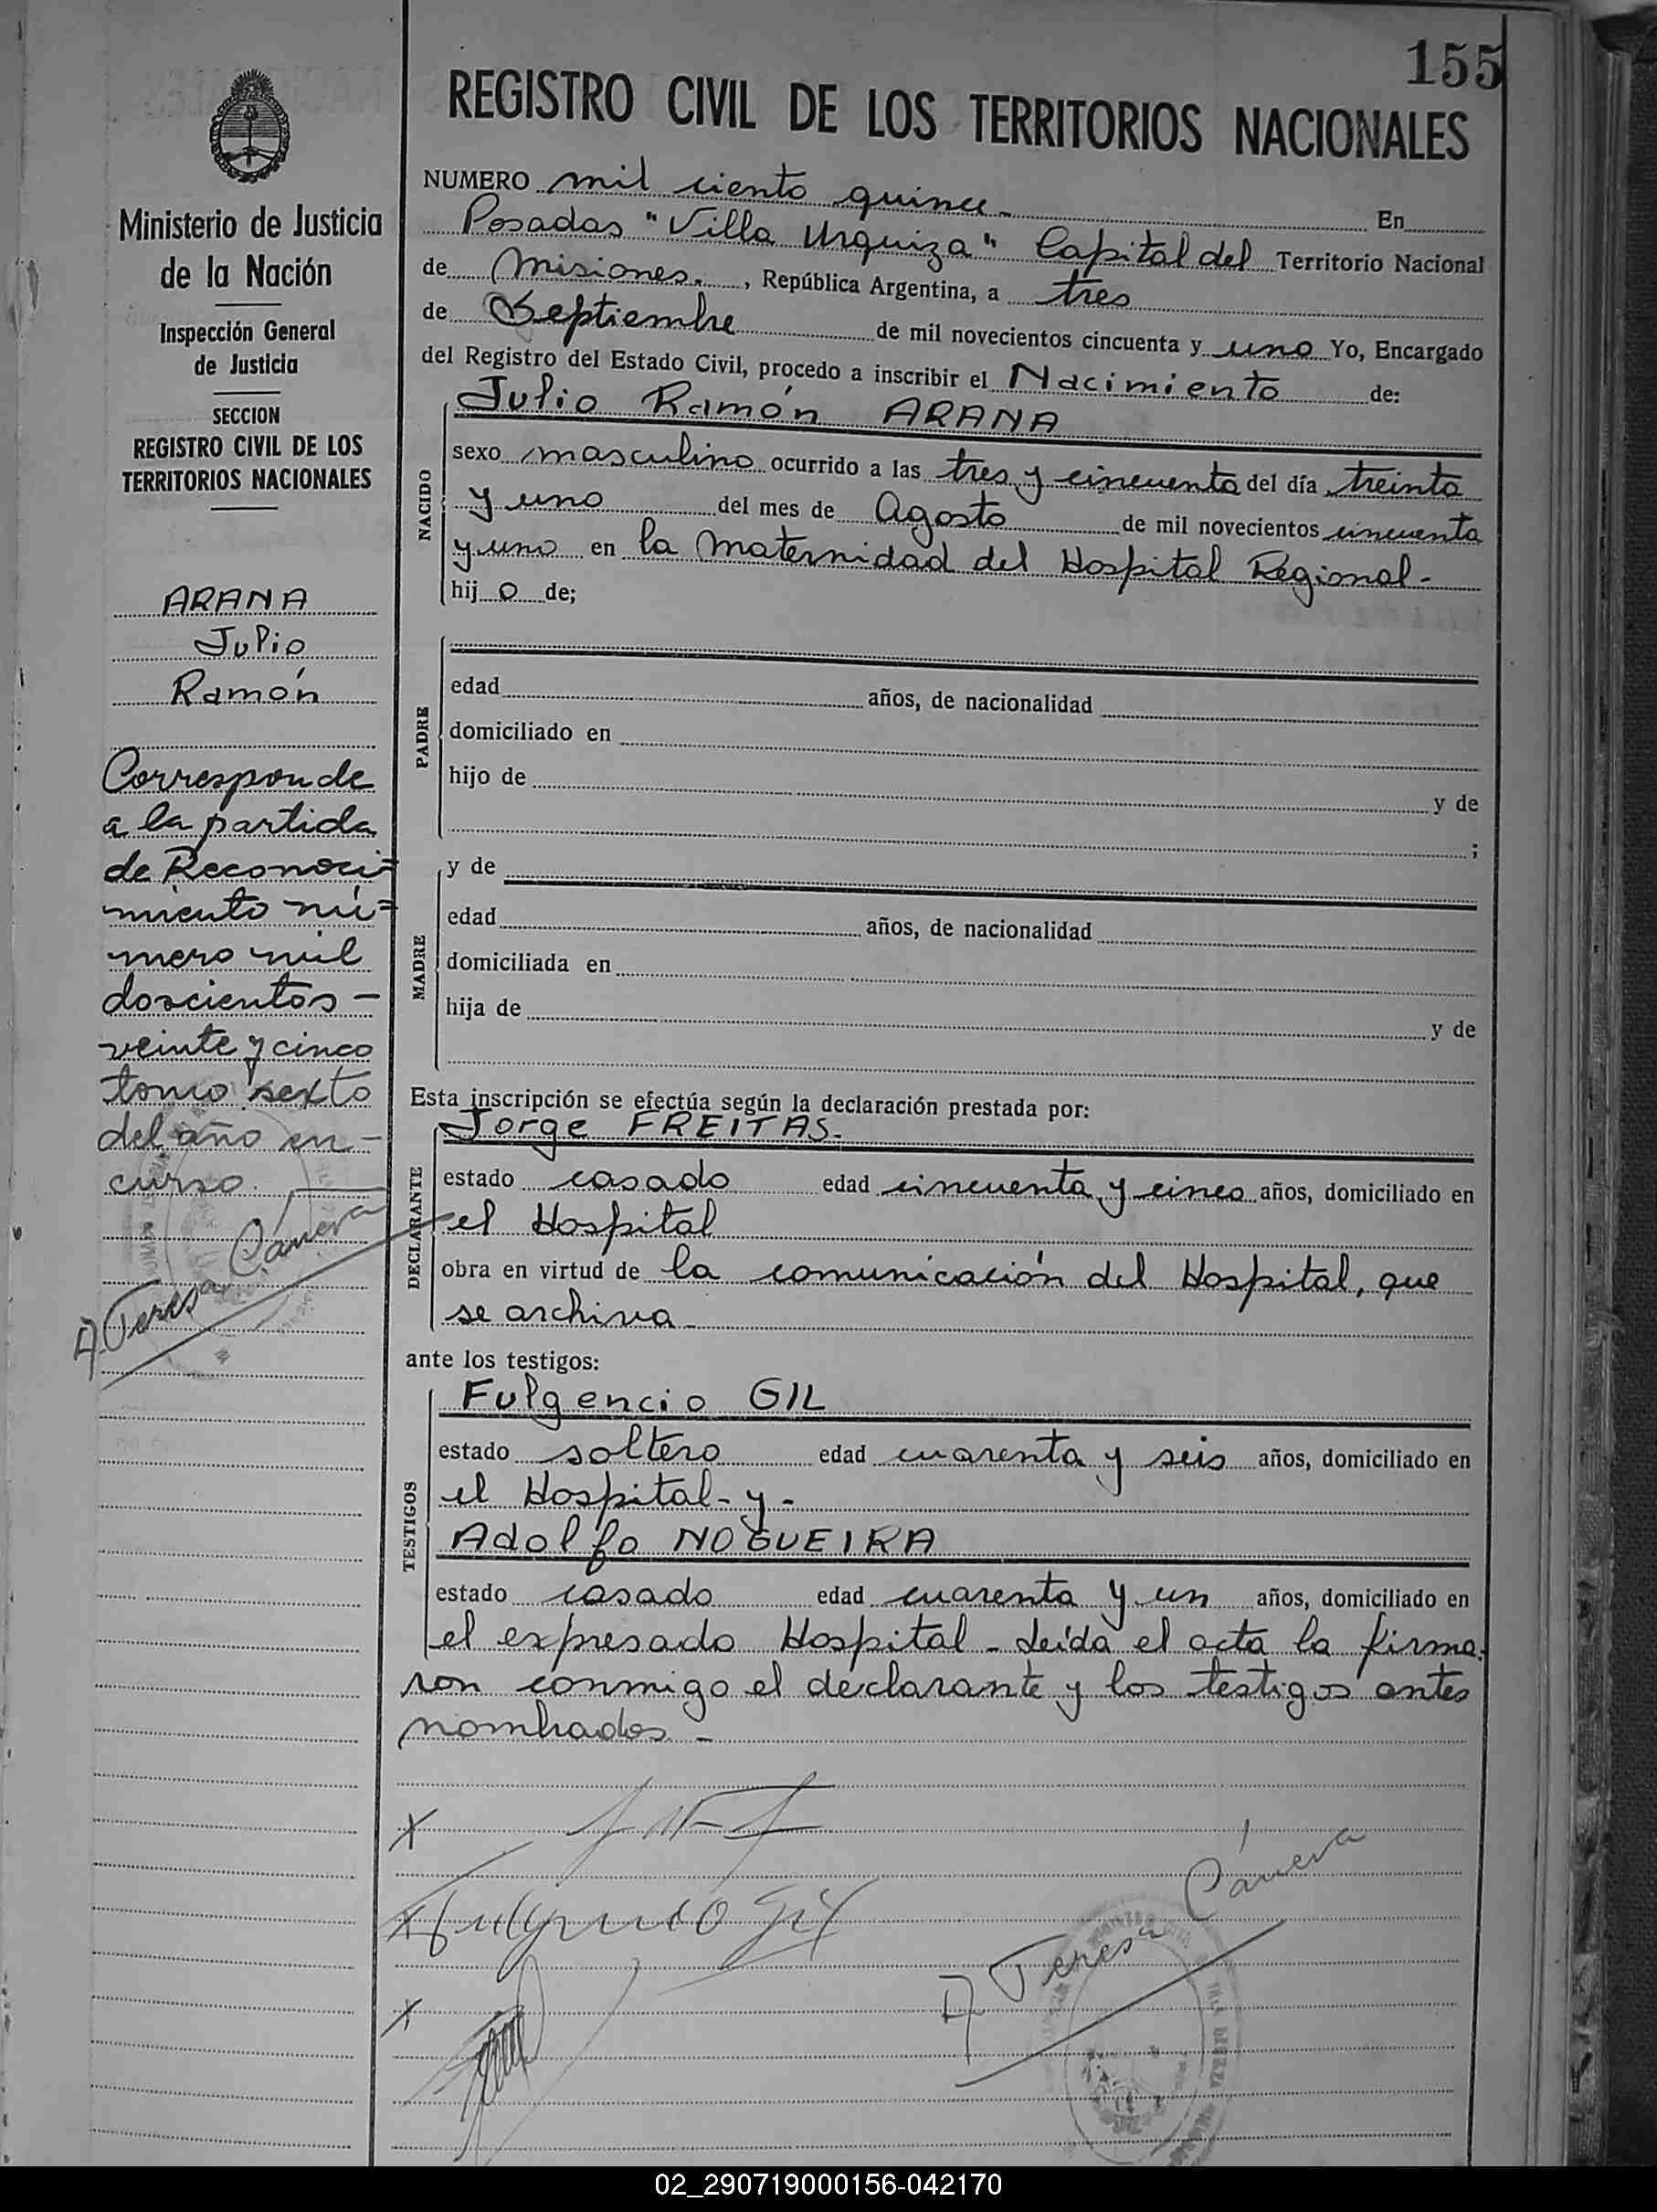 155
REGISTRO CIVIL DE LOS TERRITORIOS NACIONALES
Ministerio de Justicia
de la Nación
Inspección General
de Justicia
SECCION
REGISTRO CIVIL DE LOS
TERRITORIOS NACIONALES
ARANA
Julio
Ramón
Corresponde
a la partida
de Reconoci=
miento nú=
mero mil
doscientos -
veinte y cinco
tomo sexto
del año en -
curso.
A. Teresa Cánova
NUMERO mil ciento quince - En
Posadas "Villa Urquiza" Capital del Territorio Nacional
de Misiones. , República Argentina, a tres
de Septiembre de mil novecientos cincuenta y uno Yo, Encargado
del Registro del Estado Civil, procedo a inscribir el Nacimiento de:
NACIDO
Julio Ramón ARANA
sexo masculino ocurrido a las tres y cincuenta del día treinta
y uno del mes de Agosto de mil novecientos cincuenta
y uno en la Maternidad del Hospital Regional -
hij o de;
PADRE
edad años, de nacionalidad
domiciliado en
hijo de y de
;
MADRE
y de
edad años, de nacionalidad
domiciliada en
hija de y de
Esta inscripción se efectúa según la declaración prestada por:
DECLARANTE
Jorge FREITAS.
estado casado edad cincuenta y cinco años, domiciliado en
el Hospital
obra en virtud de la comunicación del Hospital, que
se archiva -
ante los testigos:
TESTIGOS
Fulgencio GIL
estado soltero edad cuarenta y seis años, domiciliado en
el Hospital - y -
Adolfo NOGUEIRA
estado casado edad cuarenta y un años, domiciliado en
el expresado Hospital - Leída el acta la firma-
ron conmigo el declarante y los testigos antes
nombrados -
X
X Fulgencio Gil
X
A. Teresa Cánova
02_290719000156-042170